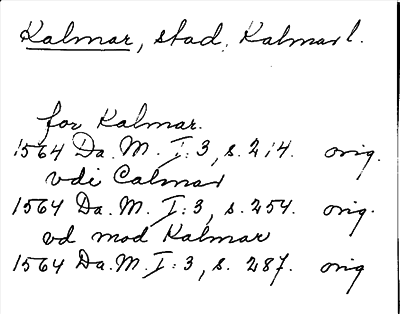 Kalmar, stad, Kalmar l.
for Kalmar.
1564 Da. M. I:3, s. 214. orig.
vdi Calmar
1564 Da. M. I:3, s. 254. orig.
vd mod Kalmar
1564 Da. M. I:3, s. 287. orig